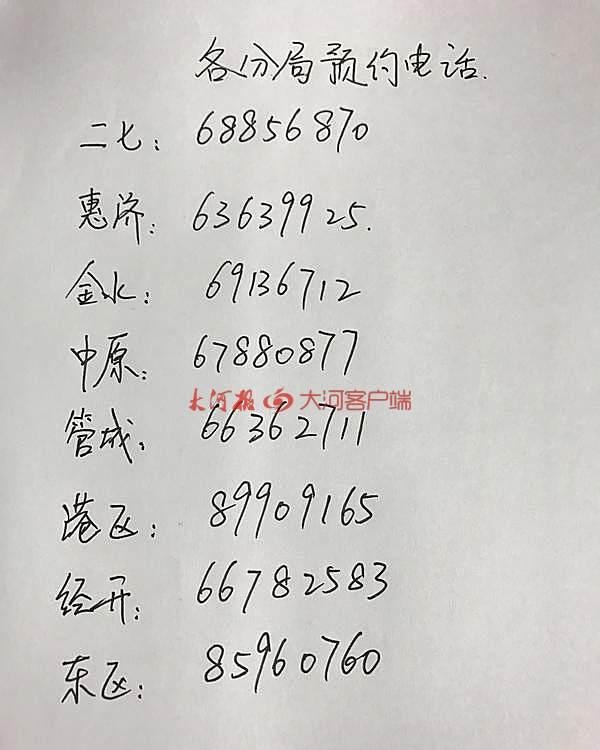 各分局预约电话.
二七: 68856870
惠济: 63639925.
金水: 69136712
中原: 67880877
大河报 大河客户端
管城: 66362711
港区: 89909165
经开: 66782583
东区: 85960760